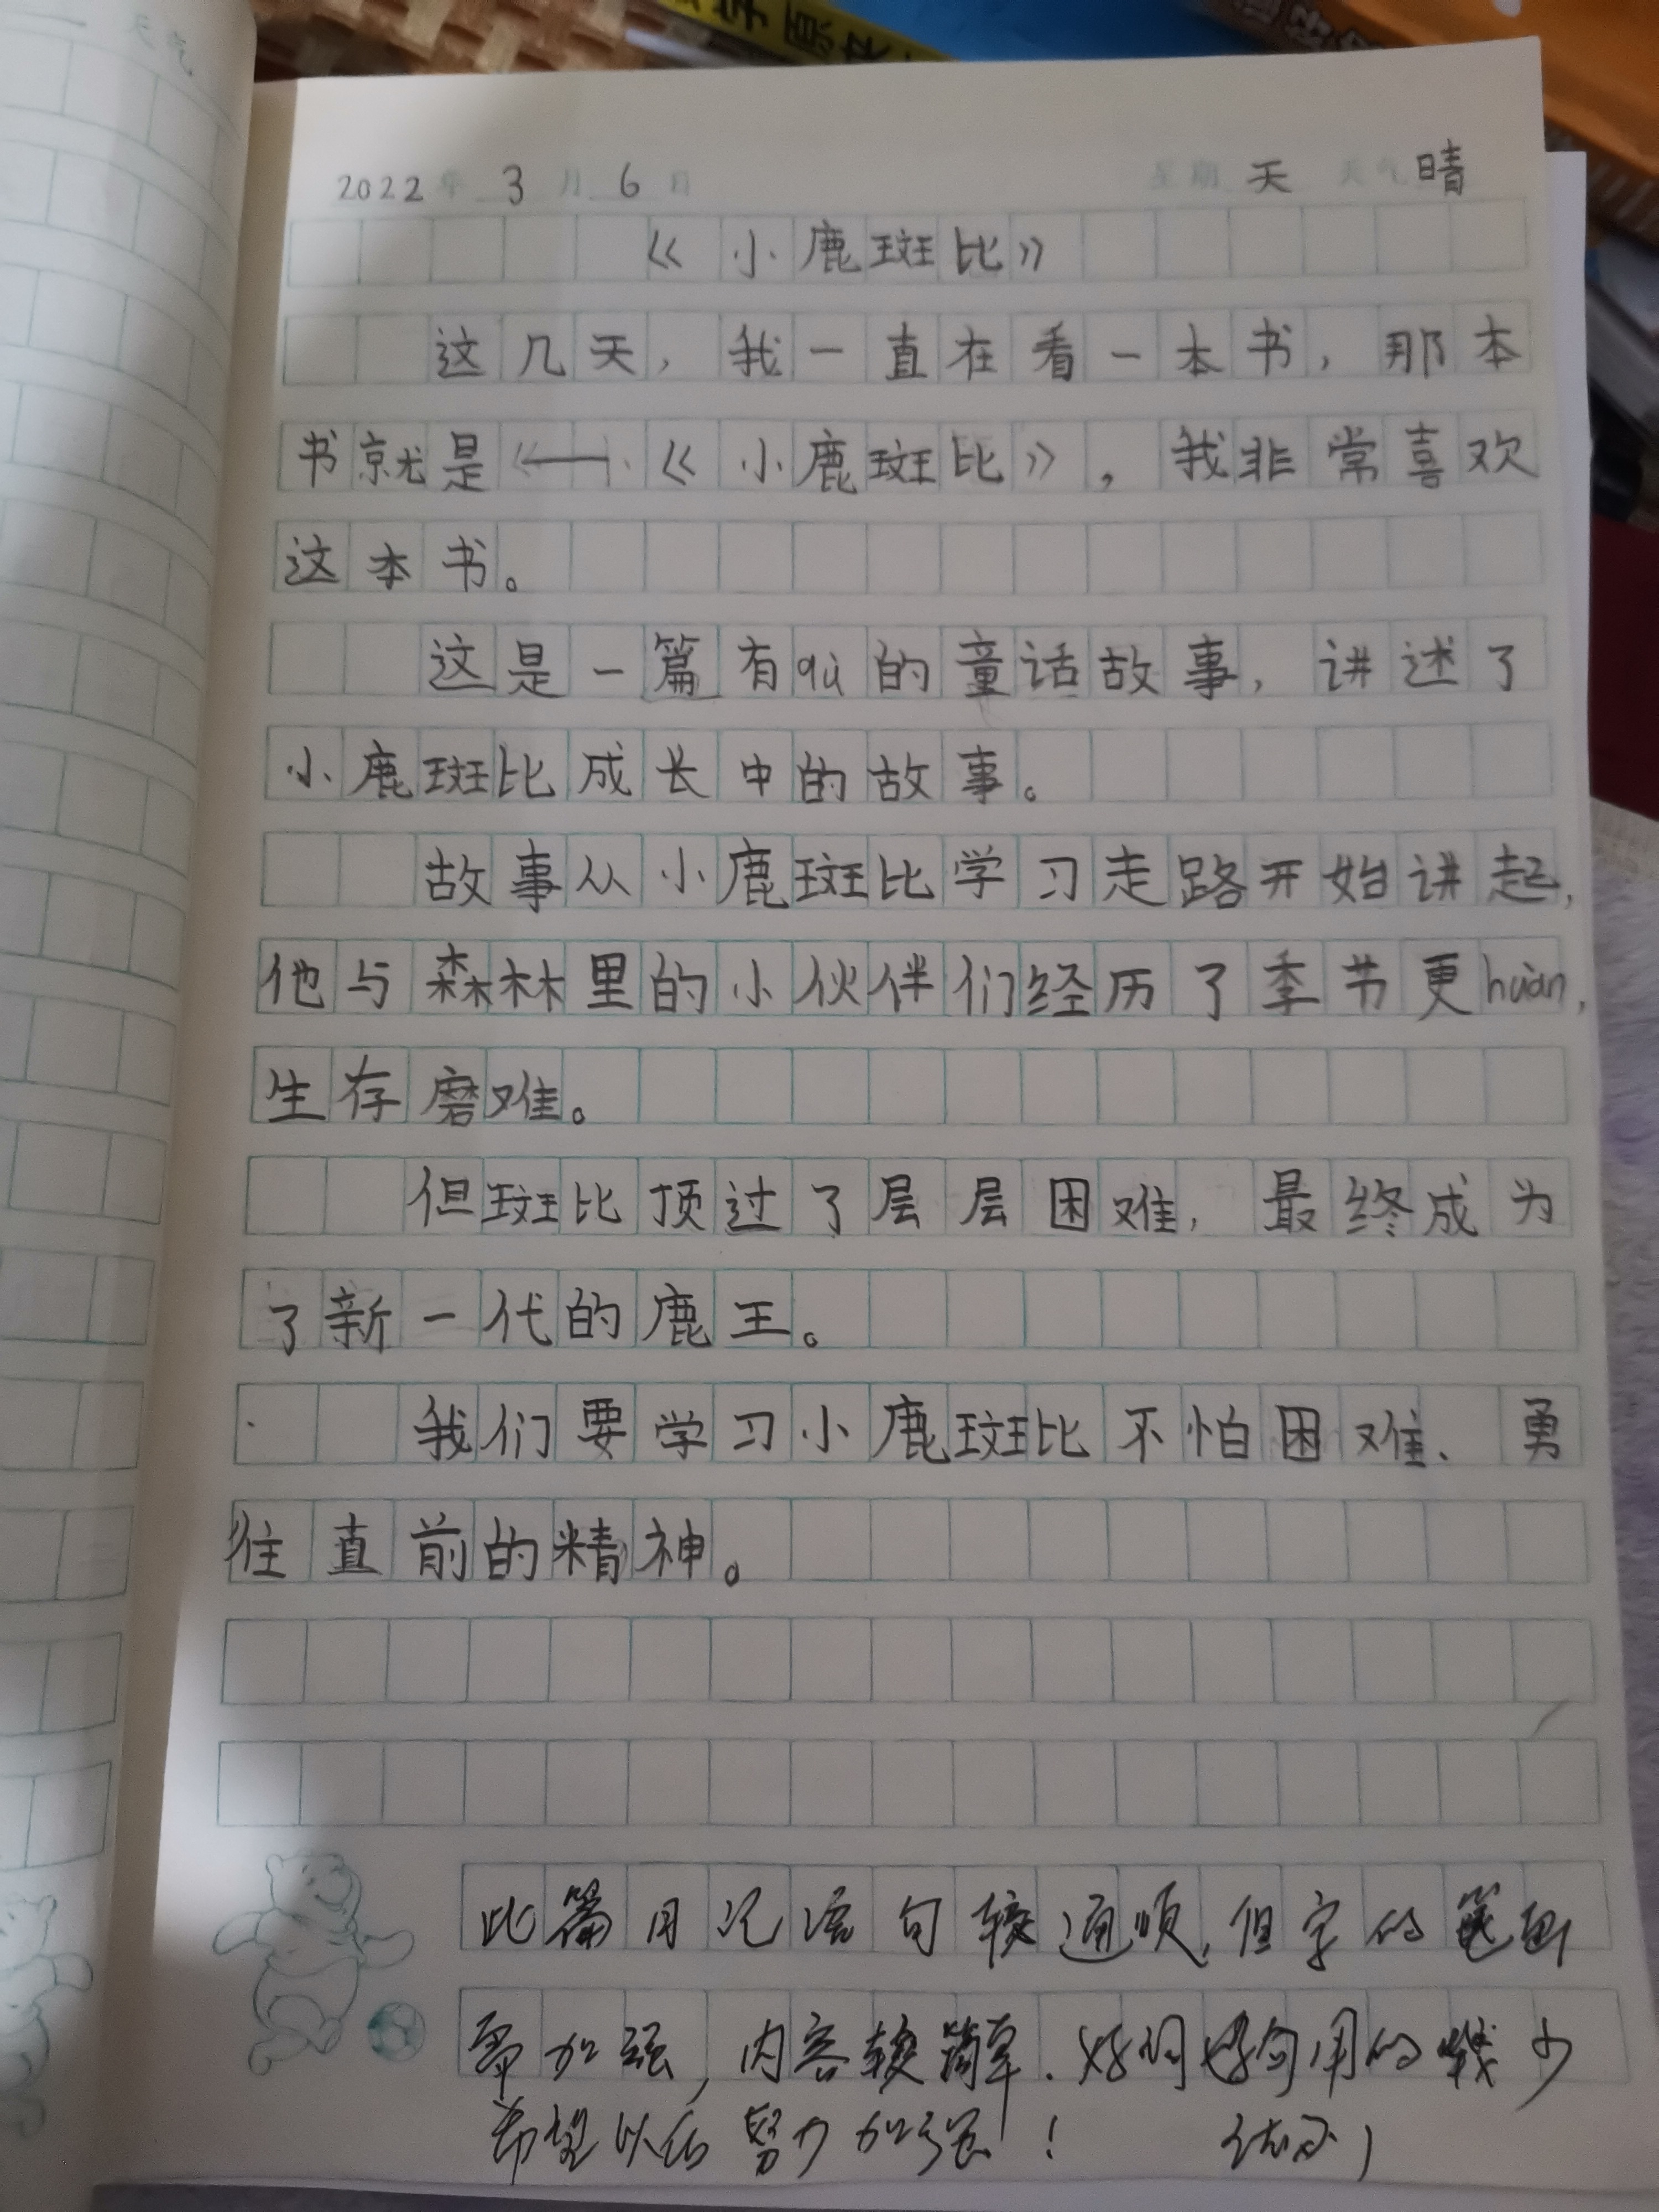 天气
2022年 3月 6日 星期 天 天气 晴
《小鹿斑比》
这几天，我一直在看一本书，那本
书就是《小鹿斑比》，我非常喜欢
这本书。
这是一篇有qù的童话故事，讲述了
小鹿斑比成长中的故事。
故事从小鹿斑比学习走路开始讲起，
他与森林里的小伙伴们经历了季节更huàn，
生存磨难。
但斑比顶过了层层困难，最终成为
了新一代的鹿王。
我们要学习小鹿斑比不怕困难、勇
往直前的精神。
此篇日记语句较通顺，但字的笔画
需加强，内容较简单．好词好句用的较少
希望以后努力加强！